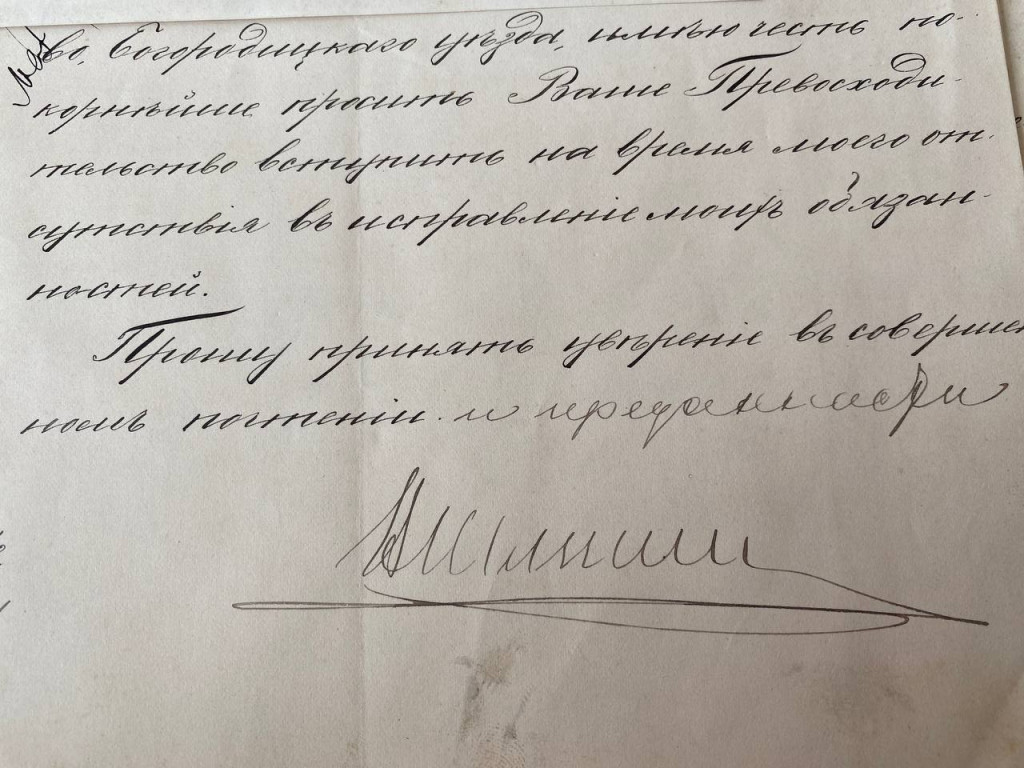 во, Богородицкаго уѣзда, имѣю честь по-
корнѣйше просить Ваше Превосходи-
тельство вступить на время моего от-
сутствія въ исправленіе моихъ обязан-
ностей.
Прошу принять увѣреніе въ совершен
номъ почтеніи и преданности